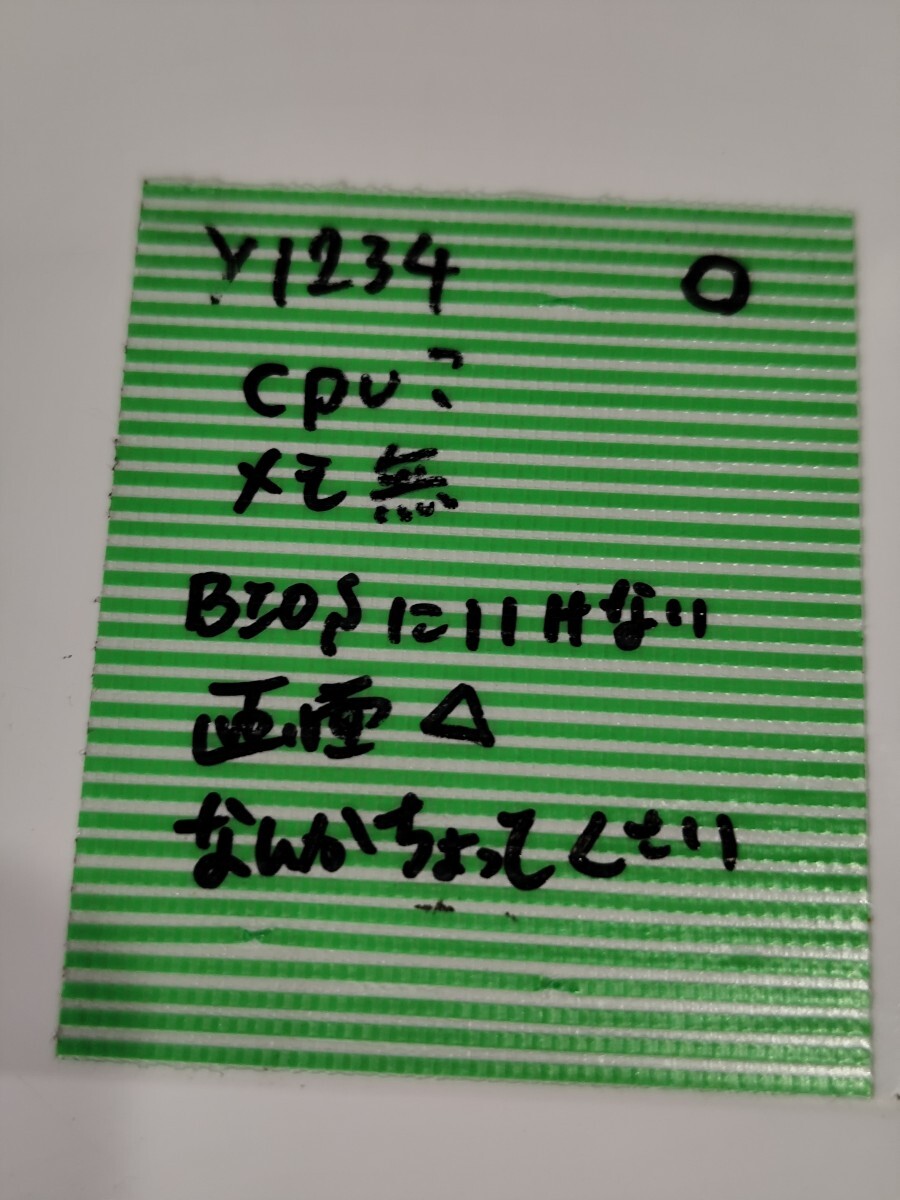 Y1234 ○
CPU?
メモ無
BIOSにいけない
画面△
なんかちょってくさい